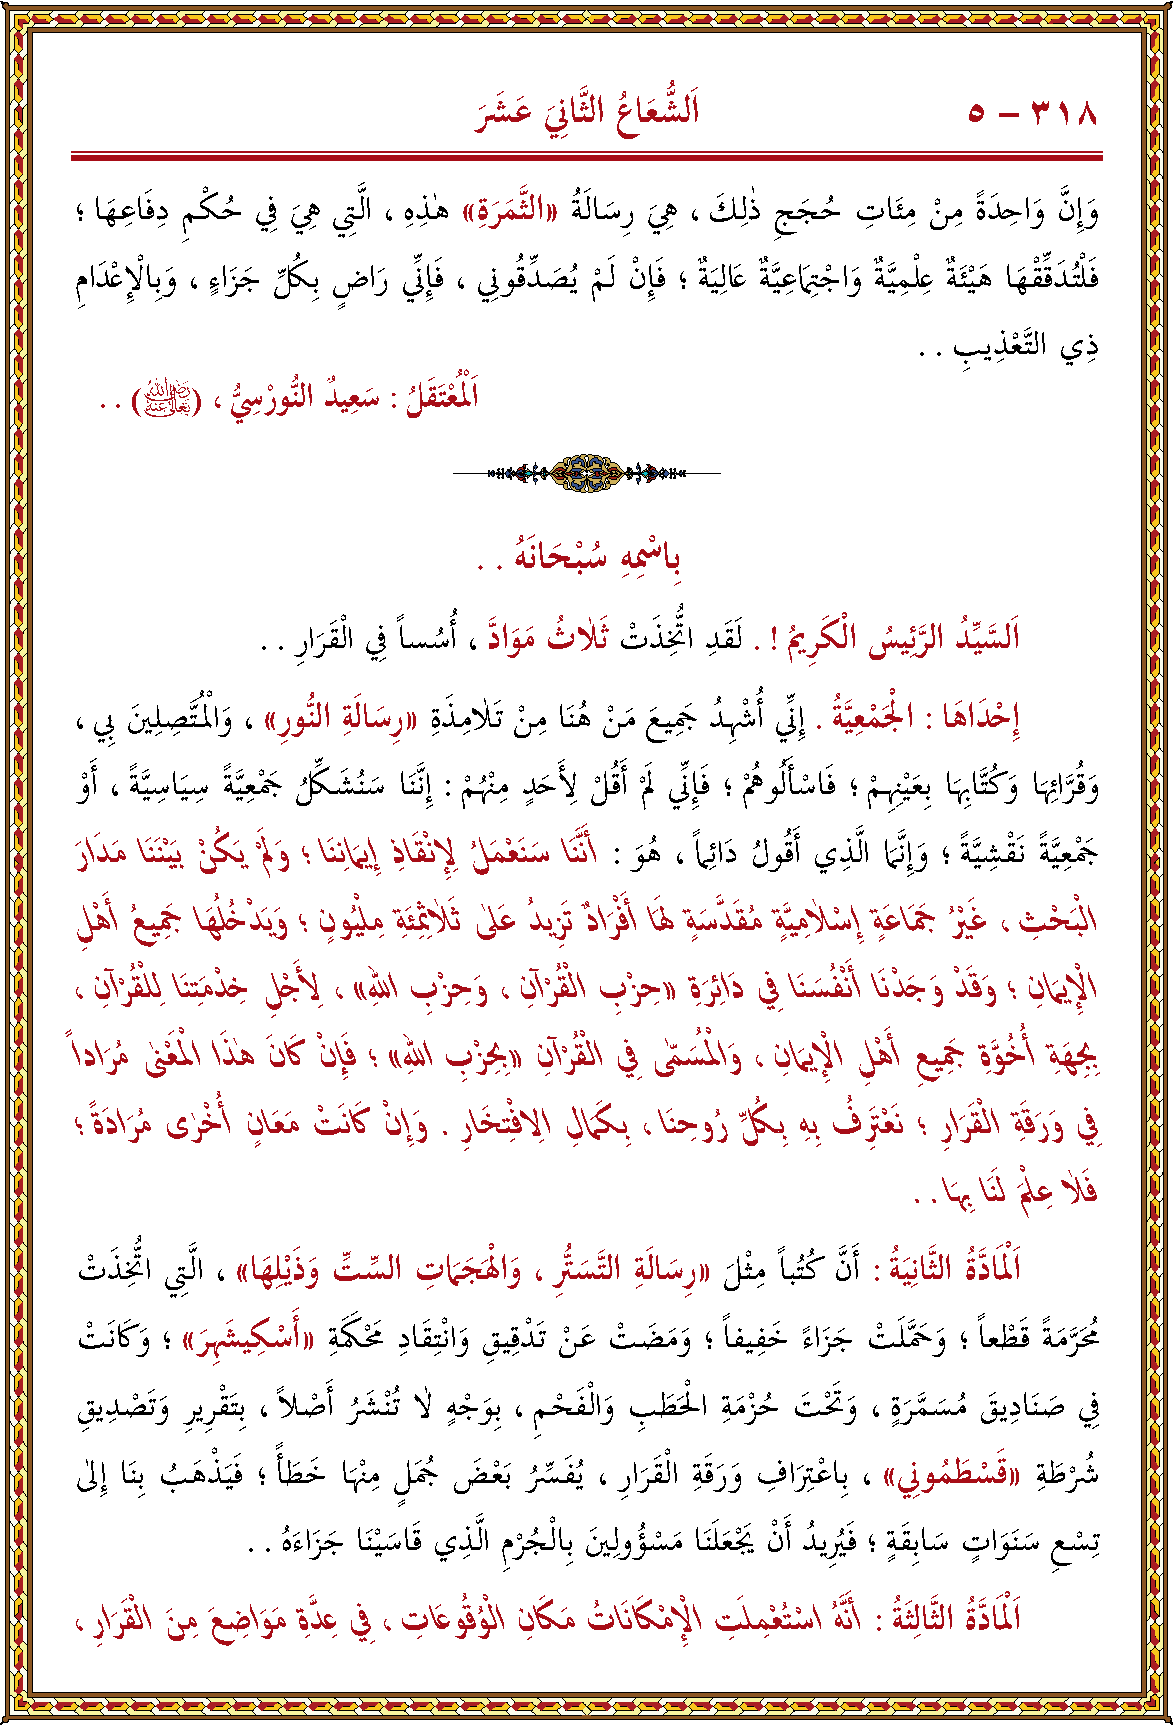 ٣١٨ – ٥ اَلشُّعَاعُ الثَّانِيَ عَشَرَ
وَإِنَّ وَاحِدَةً مِنْ مِئَاتِ حُجَجِ ذٰلِكَ ، هِيَ رِسَالَةُ «الثَّمَرَةِ» هٰذِهِ ، الَّتِي هِيَ فِي حُكْمِ دِفَاعِهَا ؛
فَلْتُدَقِّقْهَا هَيْئَةٌ عِلْمِيَّةٌ وَاجْتِمَاعِيَّةٌ عَالِيَةٌ ؛ فَإِنْ لَمْ يُصَدِّقُونِي ، فَإِنِّي رَاضٍ بِكُلِّ جَزَاءٍ ، وَبِالْإِعْدَامِ
ذِي التَّعْذِيبِ . .
اَلْمُعْتَقَلُ : سَعِيدٌ النُّورْسِيُّ ، (رضي الله تعالى عنه) . .
بِاسْمِهِ سُبْحَانَهُ . .
اَلسَّيِّدُ الرَّئِيسُ الْكَرِيمُ ! . لَقَدِ اتُّخِذَتْ ثَلَاثُ مَوَادَّ ، أُسُساً فِي الْقَرَارِ . .
إِحْدَاهَا : الْجَمْعِيَّةُ . إِنِّي أُشْهِدُ جَمِيعَ مَنْ هُنَا مِنْ تَلَامِذَةِ «رِسَالَةِ النُّورِ» ، وَالْمُتَّصِلِينَ بِي ،
وَقُرَّائِهَا وَكُتَّابِهَا بِعَيْنِهِمْ ؛ فَاسْأَلُوهُمْ ؛ فَإِنِّي لَمْ أَقُلْ لِأَحَدٍ مِنْهُمْ : إِنَّنَا سَنُشَكِّلُ جَمْعِيَّةً سِيَاسِيَّةً ، أَوْ
جَمْعِيَّةً نَقْشِيَّةً ؛ وَإِنَّمَا الَّذِي أَقُولُ دَائِماً ، هُوَ : أَنَّنَا سَنَعْمَلُ لِإِنْقَاذِ إِيمَانِنَا ؛ وَلَمْ يَكُنْ بَيْنَنَا مَدَارَ
الْبَحْثِ ، غَيْرُ جَمَاعَةٍ إِسْلَامِيَّةٍ مُقَدَّسَةٍ لَهَا أَفْرَادٌ تَزِيدُ عَلَى ثَلَاثِمِئَةِ مِلْيُونٍ ؛ وَيَدْخُلُهَا جَمِيعُ أَهْلِ
الْإِيمَانِ ؛ وَقَدْ وَجَدْنَا أَنْفُسَنَا فِي دَائِرَةِ «حِزْبِ الْقُرْآنِ ، وَحِزْبِ اللهِ» ، لِأَجْلِ خِدْمَتِنَا لِلْقُرْآنِ ،
بِجِهَةِ أُخُوَّةِ جَمِيعِ أَهْلِ الْإِيمَانِ ، وَالْمُسَمّٰى فِي الْقُرْآنِ «بِحِزْبِ اللهِ» ؛ فَإِنْ كَانَ هٰذَا الْمَعْنٰى مُرَاداً
فِي وَرَقَةِ الْقَرَارِ ؛ نَعْتَرِفُ بِهِ بِكُلِّ رُوحِنَا ، بِكَمَالِ الِافْتِخَارِ . وَإِنْ كَانَتْ مَعَانٍ أُخْرٰى مُرَادَةً ؛
فَلَا عِلْمَ لَنَا بِهَا . .
اَلْمَادَّةُ الثَّانِيَةُ : أَنَّ كُتُباً مِثْلَ «رِسَالَةِ التَّسَتُّرِ ، وَالْهَجَمَاتِ السِّتِّ وَذَيْلِهَا» ، الَّتِي اتُّخِذَتْ
مُحَرَّمَةً قَطْعاً ؛ وَحَمَّلَتْ جَزَاءً خَفِيفاً ؛ وَمَضَتْ عَنْ تَدْقِيقِ وَانْتِقَادِ مَحْكَمَةِ «أَسْكِيشَهِرَ» ؛ وَكَانَتْ
فِي صَنَادِيقَ مُسَمَّرَةٍ ، وَتَحْتَ حُزْمَةِ الْحَطَبِ وَالْفَحْمِ ، بِوَجْهٍ لَا تُنْشَرُ أَصْلاً ، بِتَقْرِيرِ وَتَصْدِيقِ
شُرْطَةِ «قَسْطَمُونِي» ، بِاعْتِرَافِ وَرَقَةِ الْقَرَارِ ، يُفَسِّرُ بَعْضَ جُمَلٍ مِنْهَا خَطَأً ؛ فَيَذْهَبُ بِنَا إِلٰى
تِسْعِ سَنَوَاتٍ سَابِقَةٍ ؛ فَيُرِيدُ أَنْ يَجْعَلَنَا مَسْؤُولِينَ بِالْجُرْمِ الَّذِي قَاسَيْنَا جَزَاءَهُ . .
اَلْمَادَّةُ الثَّالِثَةُ : أَنَّهُ اسْتُعْمِلَتِ الْإِمْكَانَاتُ مَكَانَ الْوُقُوعَاتِ ، فِي عِدَّةِ مَوَاضِعَ مِنَ الْقَرَارِ ،